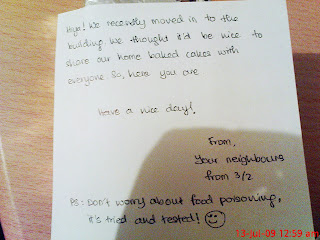 Hiya! We recently moved in to the
building. We thought it'd be nice to
share our home baked cakes with
everyone. So, here you are
Have a nice day!
From,
Your neighbours
from 3/2
PS: Don't worry about food poisoning,
it's tried and tested!
13-jul-09 12:59 am